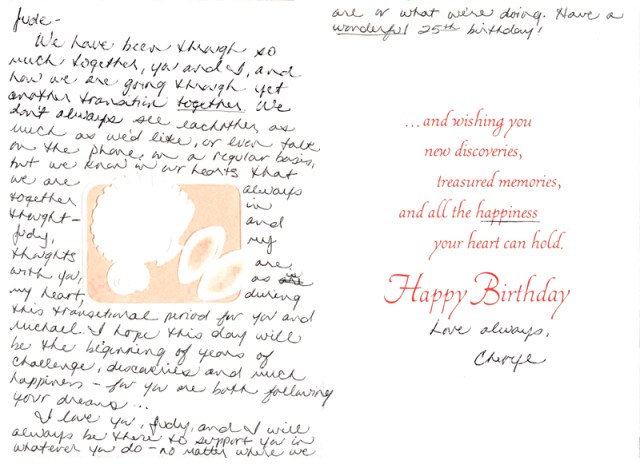 Jude -
We have been through so
much together, you and I, and
now we are going through yet
another transition together. We
don't always see eachother as
much as we'd like, or even talk
on the phone, on a regular basis,
but we know in our hearts that
we are always
together in
thought - and
Judy, my
thoughts are
with you, as in
my heart, during
this transitional period for you and
Michael. I hope this day will
be the beginning of years of
challenge, discoveries and much
happiness - for you are both following
your dreams...
I love you, Judy, and I will
always be there to support you in
whatever you do - no matter where we
are or what we're doing. Have a
wonderful 25th birthday!
...and wishing you
new discoveries,
treasured memories,
and all the happiness
your heart can hold.
Happy Birthday
Love always,
Cheryl